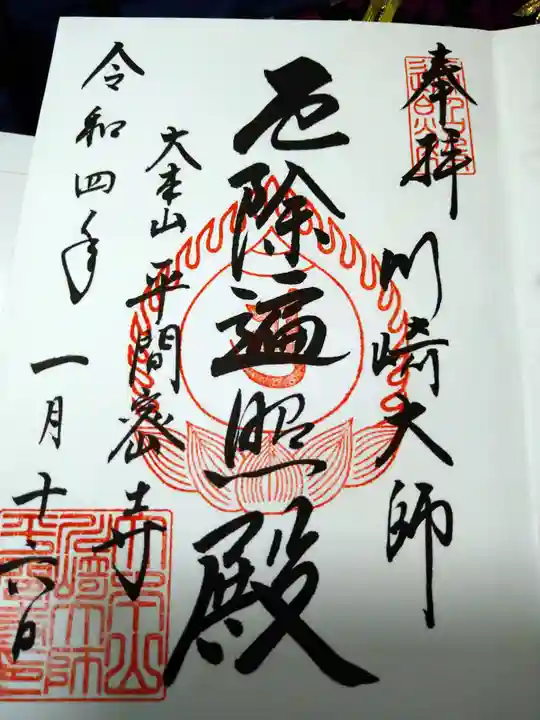 奉拝
川崎大師
厄除遍照殿
大本山平間密寺
令和四年
一月十六日